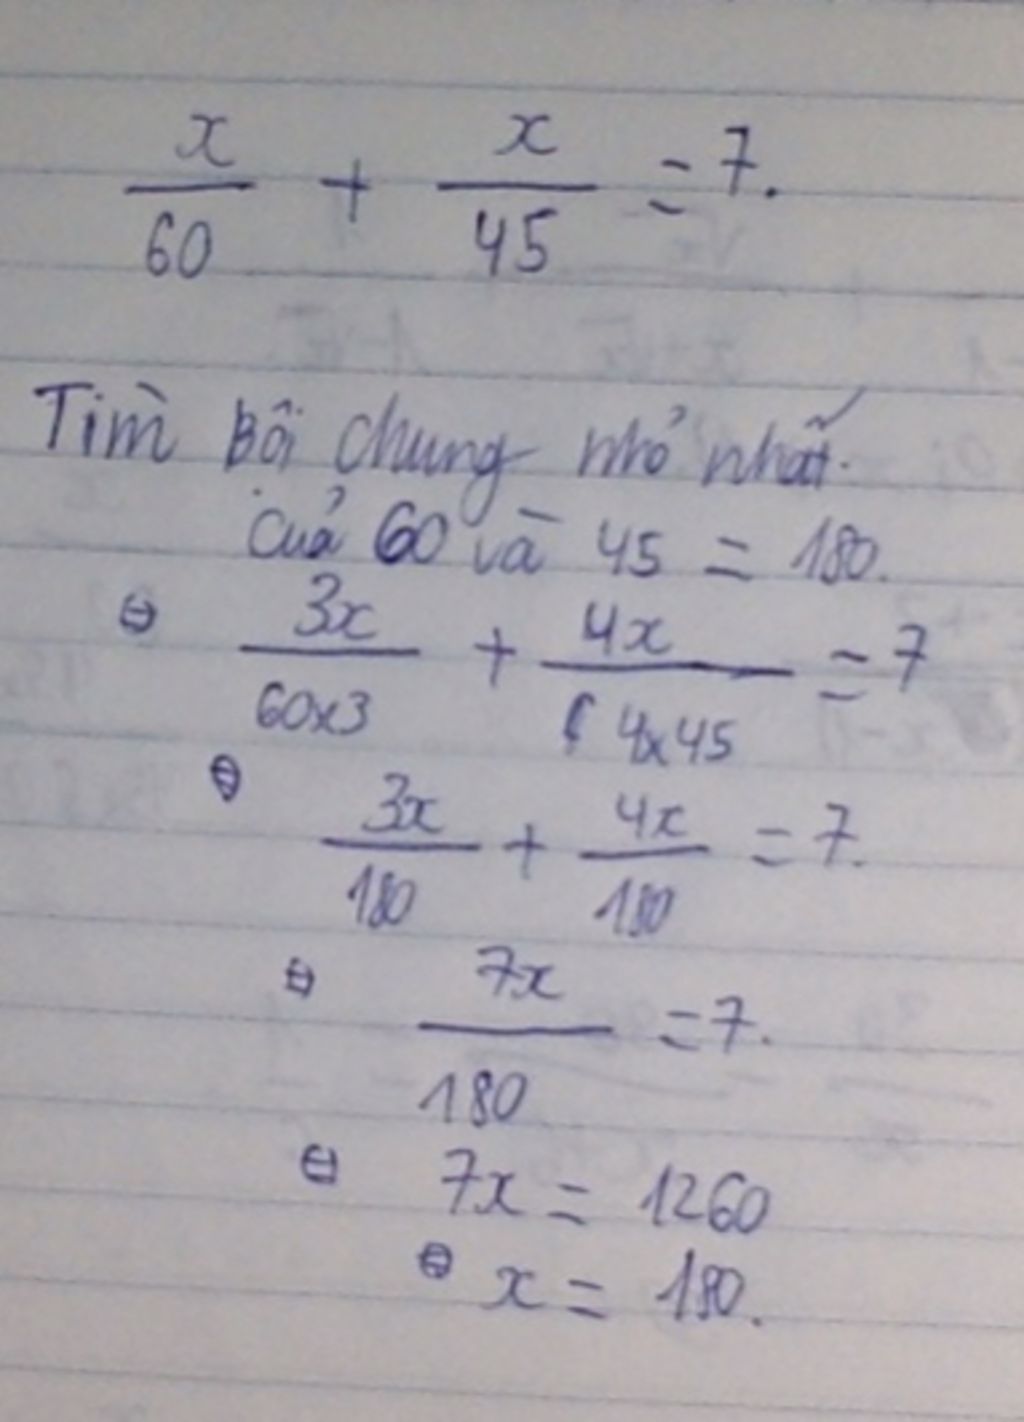 x/60 + x/45 = 7.
Tìm Bội chung nhỏ nhất.
của 60 và 45 = 180.
⇔ 3x/60x3 + 4x/4x45 = 7
⇔ 3x/180 + 4x/180 = 7.
⇔ 7x/180 = 7.
⇔ 7x = 1260
⇔ x = 180.